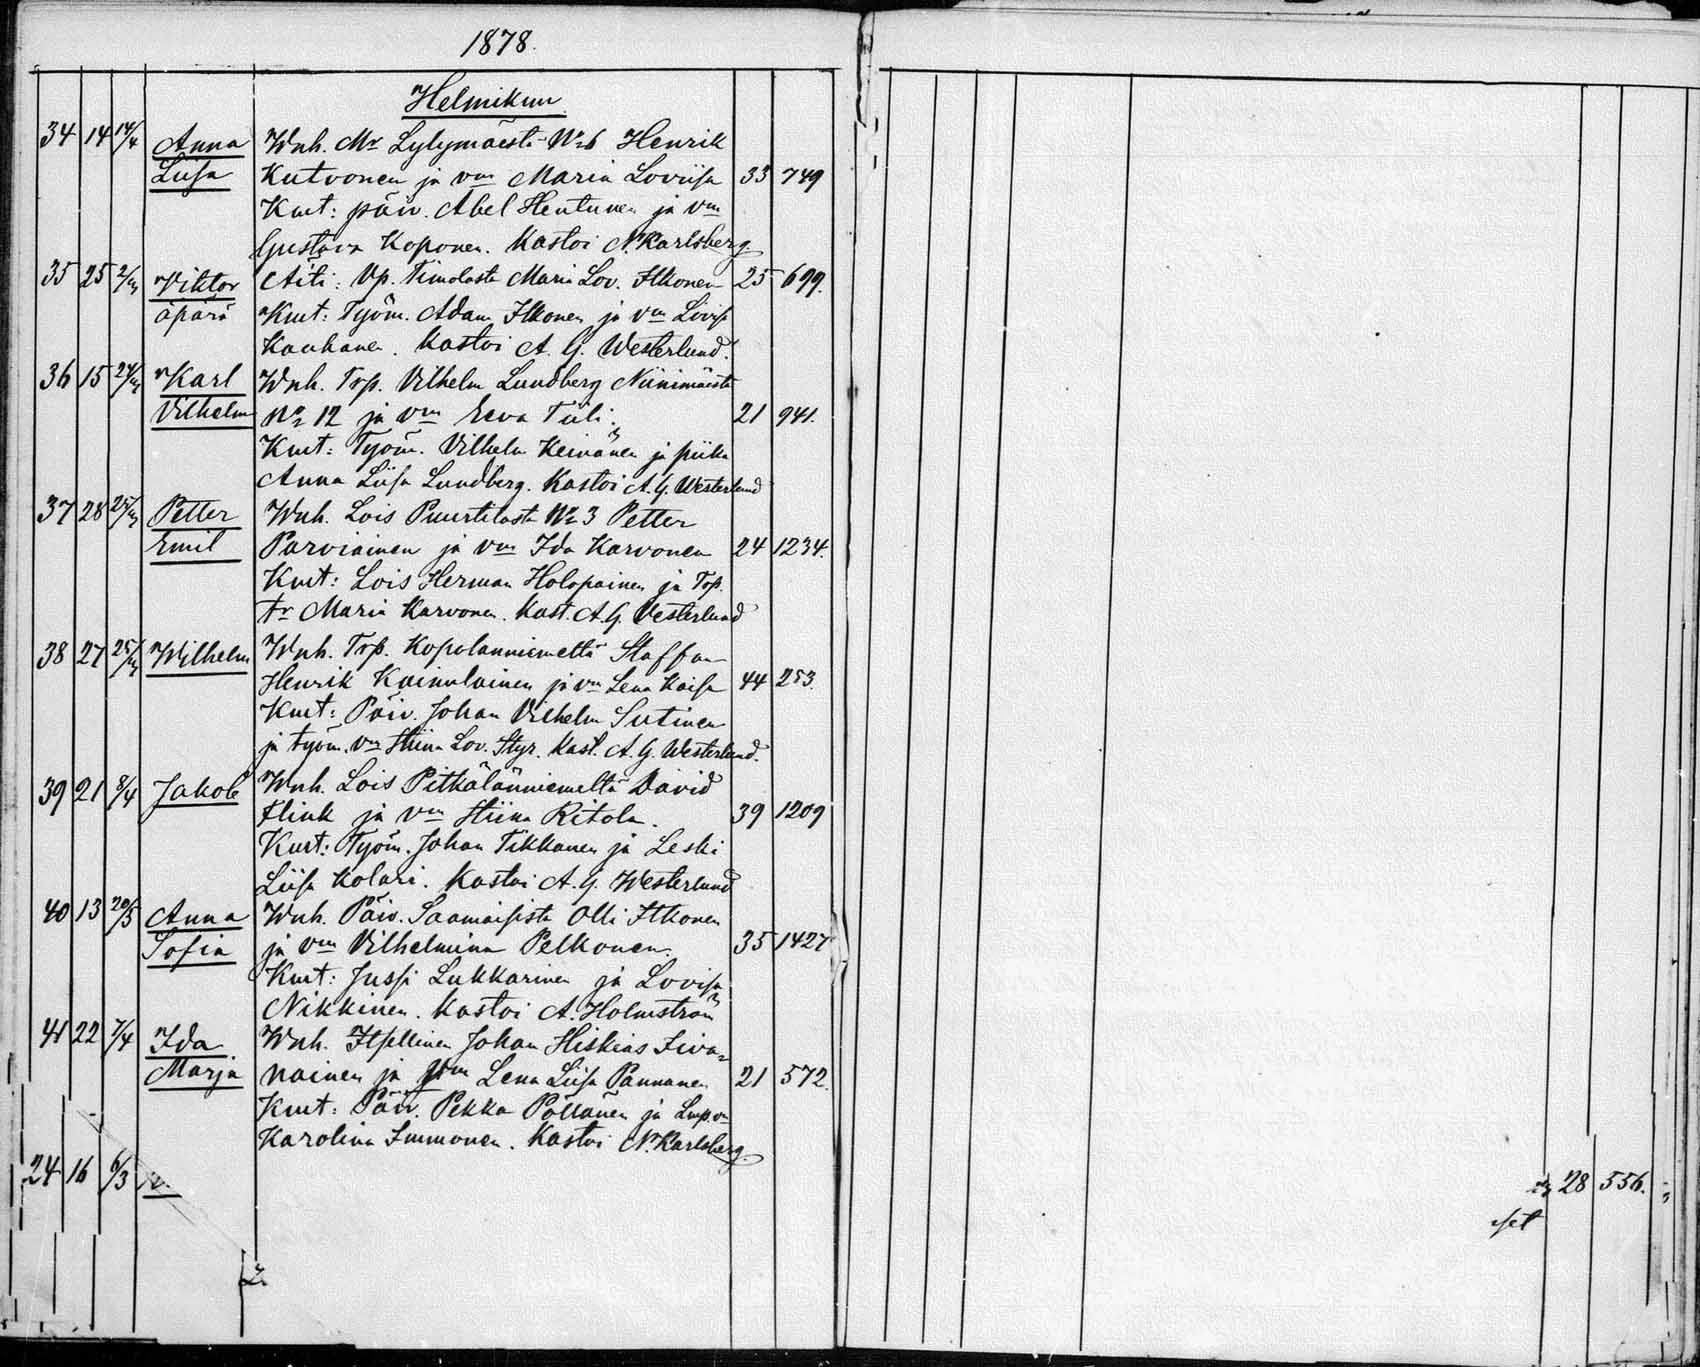 1878.
Helmikuu
34 14 14/4 Anna Wnh. Mr Lylymäestä No 6 Henrik
Liisa Kutvonen ja vm Maria Loviisa 33 749
Kmt: päiv. Abel Hentunen ja vm
Gustava Koponen. Kastoi N. Karlsberg.
35 25 Viktor Äiti: Vp. Timolasta Maria Lov. Itkonen 25 699.
äpärä Kmt: Työm. Adam Itkonen ja vm Lovisa
Kauhanen. Kastoi A. G. Westerlund.
36 15 Karl Wnh. Trp. Vilhelm Lundberg Niinimäestä
Vilhelm No 12 ja vm Eeva Tiili. 21 941.
Kmt: Työm. Vilhelm Keinänen ja piika
Anna Liisa Lundberg. Kastoi A. G. Westerlund
37 28 Petter Wnh. Lois Puurtilasta No 3 Petter
Emil Parviainen ja vm Ida Karvonen 24 1234.
Kmt: Lois Herman Holopainen ja Trp.
tr Maria Karvonen. Kast. A. G. Vesterlund
38 27 Wilhelm Wnh. Trp. Kopolanniemeltä Staffan
Henrik Kainulainen ja vm Lena Kaisa 44 253.
Kmt: Päiv. Johan Vilhelm Sutinen
ja työm. vm Hiina Lov. Styr. Kast. A. G. Westerlund.
39 21 8/4 Jakob Wnh. Lois Pitkälänniemeltä David
Flink ja vm Hiina Ritola. 39 1209
Kmt: Työm. Johan Tikkanen ja Leski
Liisa Kolari. Kastoi A. G. Westerlund
40 13 20/5 Anna Wnh. Päiv. Saamaisista Olli Itkonen
Sofia ja vm Vilhelmina Pelkonen. 35 1427
Kmt: Jussi Lukkarinen ja Lovisa
Nikkinen. Kastoi A. Holmström
41 22 7/4 Ida Wnh. Itsellinen Johan Hiskias Iiva=
Marja nainen ja vm Lena Liisa Pannanen 21 572.
Kmt: Päiv. Pekka Pöllänen ja Lmp. vm
Karolina Immonen. Kastoi N. Karlsberg.
24 16 6/3 28 556.